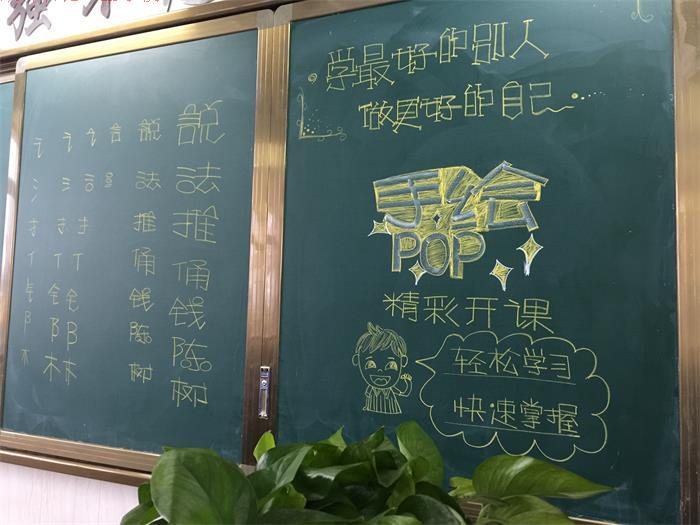 强
讠 讠 讠 言 說 說
氵 氵 法 法
扌 扌 扌 推 推
亻 亻 亻 俑 俑
钅 钅 钅 钱 钱
阝 阝 阝 陈 陈
木 木 木 树 树
学最好的别人
做更好的自己
手绘
POP
精彩开课
轻松学习
快速掌握